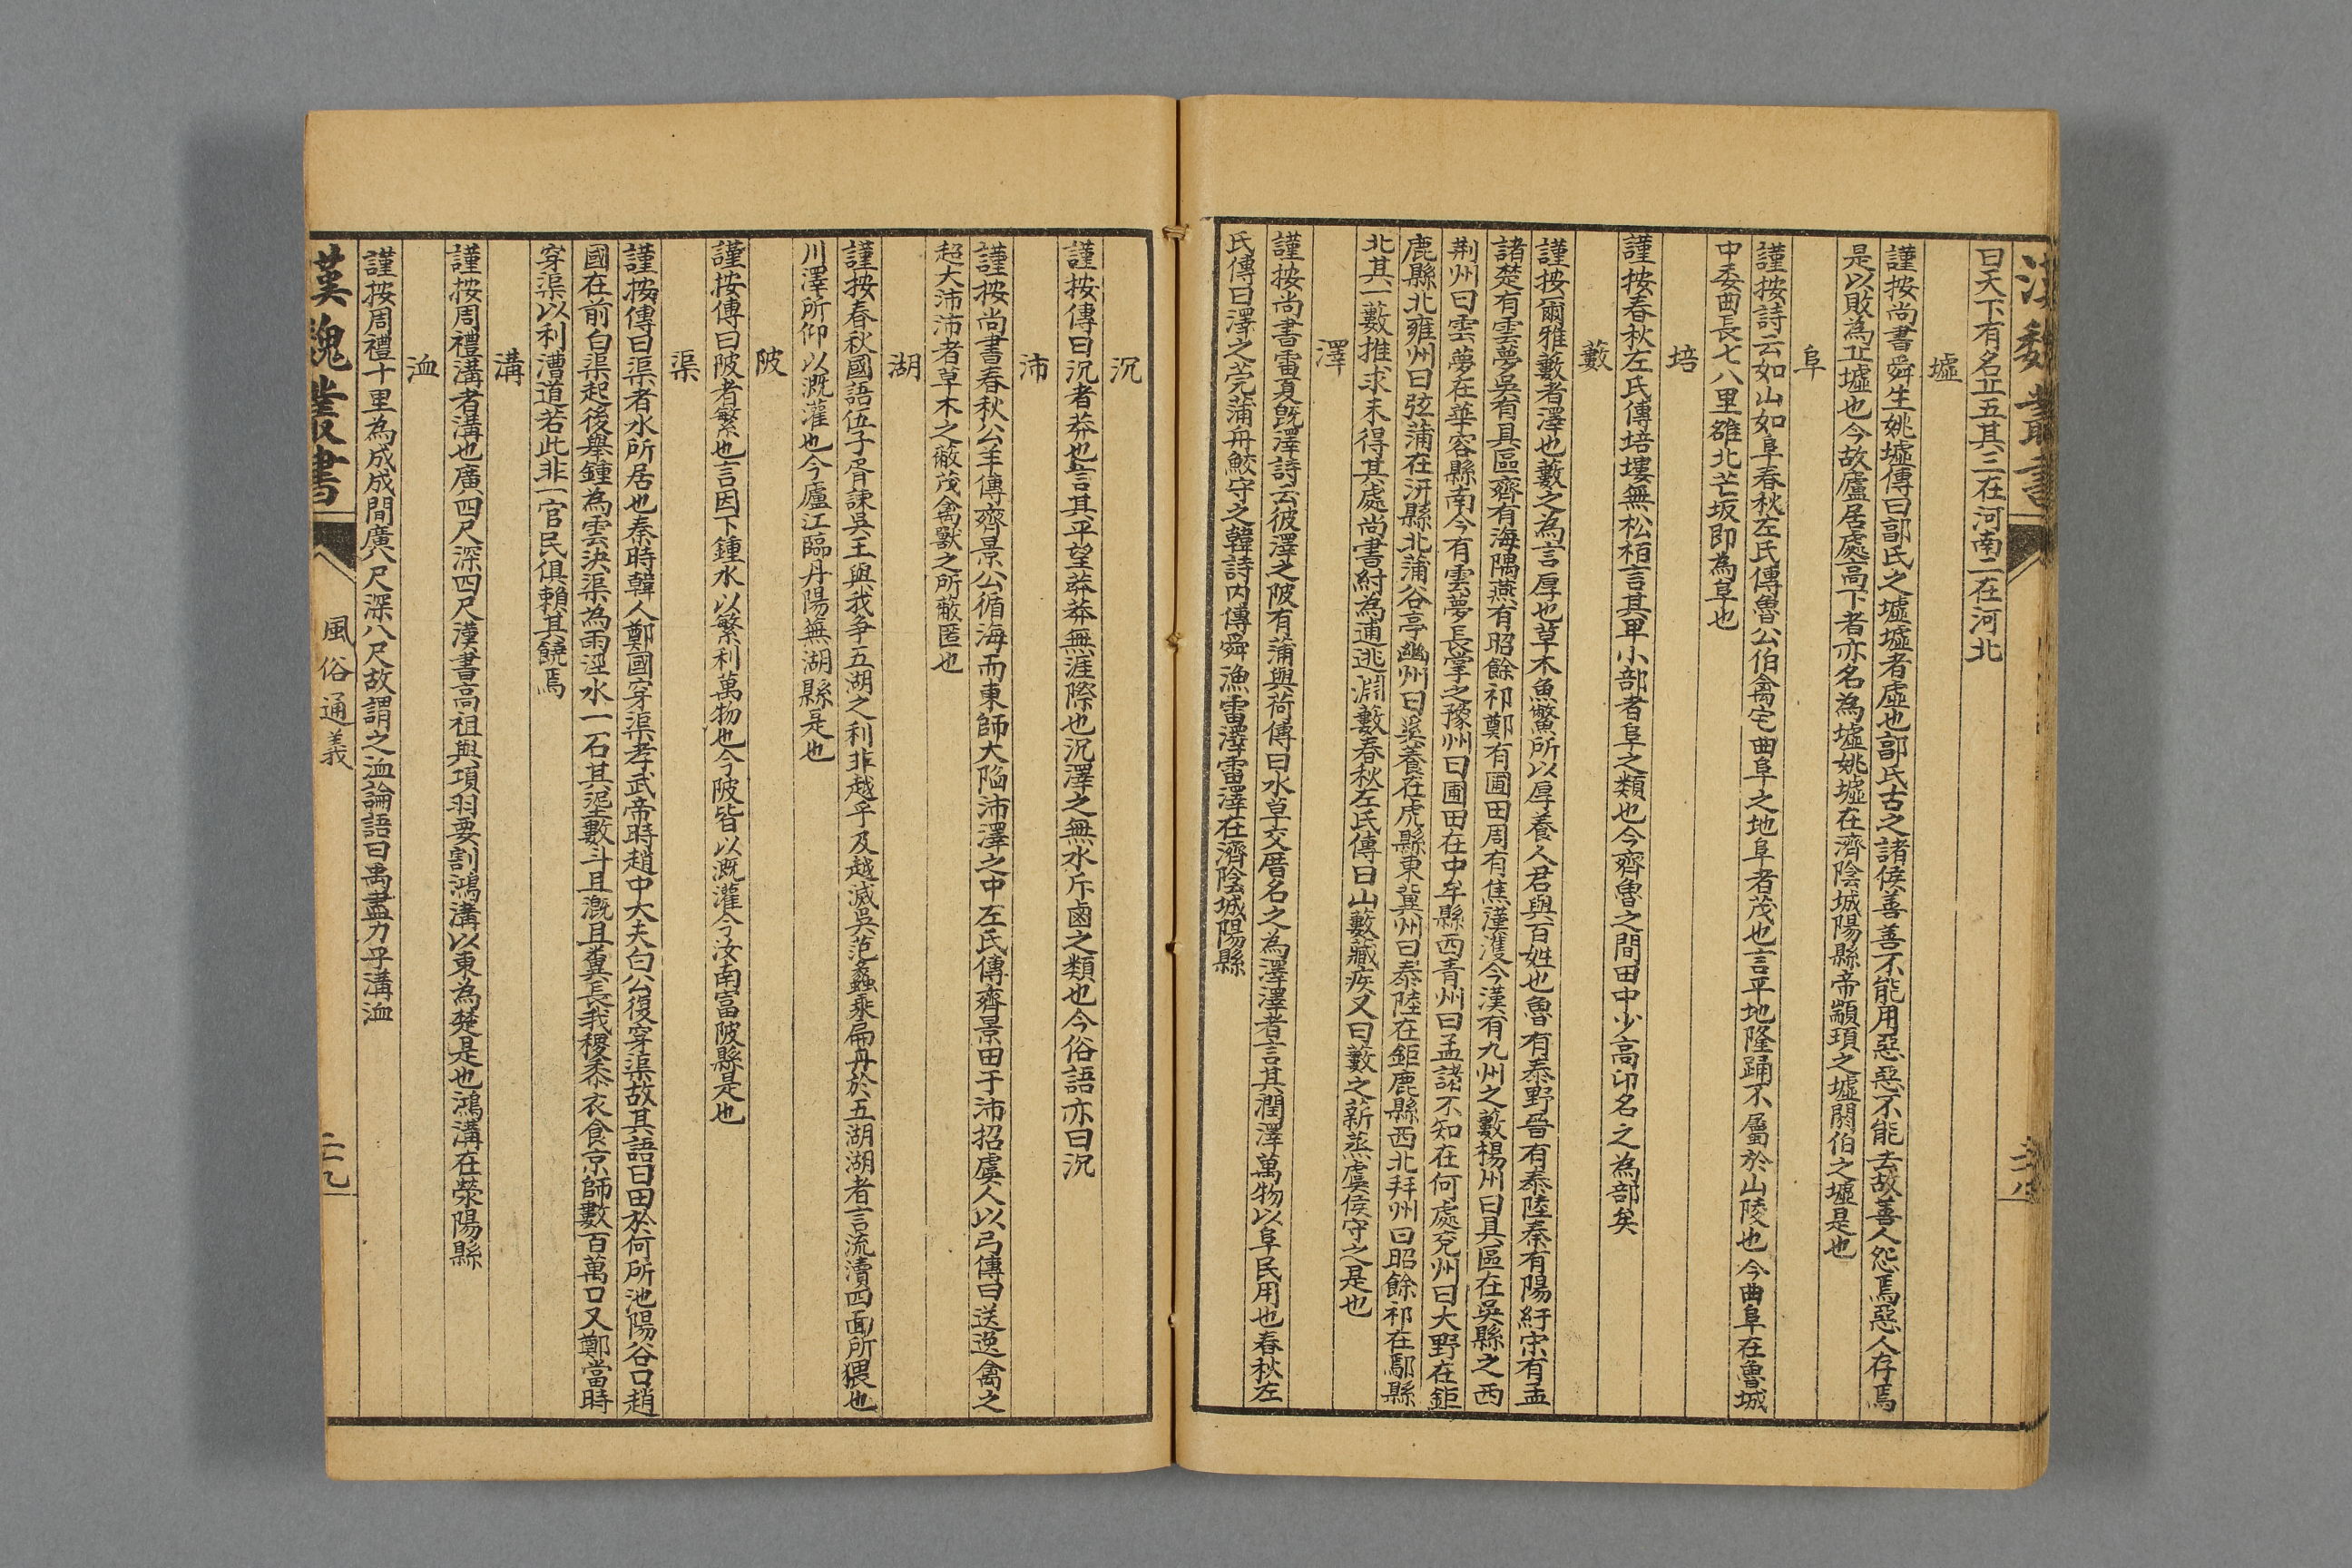 漢魏叢書
二八
曰天下有名丘五其三在河南二在河北
墟
謹按尚書舜生姚墟傳曰郭氏之墟墟者虛也郭氏古之諸侯善善不能用惡惡不能去故善人怨焉惡人存焉
是以敗為丘墟也今故廬居處高下者亦名為墟姚墟在濟陰城陽縣帝顓頊之墟閼伯之墟是也
阜
謹按詩云如山如阜春秋左氏傳魯公伯禽宅曲阜之地阜者茂也言平地隆踊不屬於山陵也今曲阜在魯城
中委曲長七八里雒北芒坂即為阜也
培
謹按春秋左氏傳培塿無松栢言其卑小部者阜之類也今齊魯之間田中少高卬名之為部矣
藪
謹按爾雅藪者澤也藪之為言厚也草木魚鱉所以厚養人君與百姓也魯有泰野晉有泰陸秦有陽紆宋有孟
諸楚有雲夢吳有具區齊有海隅燕有昭餘祁鄭有圃田周有焦濩今漢有九州之藪楊州曰具區在吳縣之西
荆州曰雲夢在華容縣南今有雲夢長掌之豫州曰圃田在中牟縣西青州曰孟諸不知在何處兖州曰大野在鉅
鹿縣北雍州曰弦蒲在汧縣北蒲谷亭幽州曰奚養在虎縣東冀州曰泰陸在鉅鹿縣西北并州曰昭餘祁在鄔縣
北其一藪推求未得其處尚書紂為逋逃淵藪春秋左氏傳曰山藪藏疾又曰藪之薪蒸虞侯守之是也
澤
謹按尚書雷夏旣澤詩云彼澤之陂有蒲與荷傳曰水草交厝名之為澤澤者言其潤澤萬物以阜民用也春秋左
氏傳曰澤之莞蒲舟鮫守之韓詩內傳舜漁雷澤雷澤在濟陰城陽縣
沆
謹按傳曰沆者莽也言其平望莽莽無涯際也沆澤之無水斥鹵之類也今俗語亦曰沆
沛
謹按尚書春秋公羊傳齊景公循海而東師大陷沛澤之中左氏傳齊景田于沛招虞人以弓傳曰送逸禽之
超大沛沛者草木之蔽茂禽獸之所蔽匿也
湖
謹按春秋國語伍子胥諫吳王與我争五湖之利非越乎及越滅吳范蠡乘扁舟於五湖湖者言流瀆四面所猥也
川澤所仰以溉灌也今廬江臨丹陽蕪湖縣是也
陂
謹按傳曰陂者繁也言因下鍾水以繁利萬物也今陂皆以溉灌今汝南富陂縣是也
渠
謹按傳曰渠者水所居也秦時韓人鄭國穿渠孝武帝時趙中大夫白公復穿渠故其語曰田於何所池陽谷口趙
國在前白渠起後舉鍤為雲決渠為雨涇水一石其泥數斗且溉且糞長我稷黍衣食京師數百萬口又鄭當時
穿渠以利漕道若此非一官民俱賴其饒焉
溝
謹按周禮溝者溝也廣四尺深四尺漢書高祖與項羽要割鴻溝以東為楚是也鴻溝在滎陽縣
洫
謹按周禮十里為成成間廣八尺深八尺故謂之洫論語曰禹盡力乎溝洫
漢魏叢書
風俗通義
二九